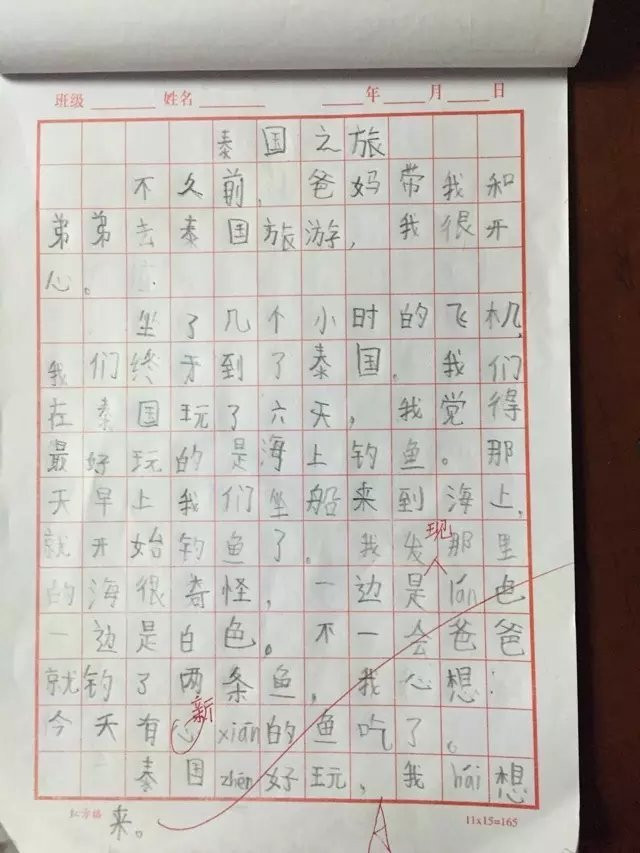 班级 姓名 年 月 日
泰国之旅
不久前,爸妈带我和
弟弟去泰国旅游,我很开
心。
坐了几个小时的飞机,
我们终于到了泰国。我们
在泰国玩了六天,我觉得
最好玩的是海上钓鱼。那
天早上我们坐船来到海上,
就开始钓鱼了。我发现那里
的海很奇怪,一边是lán色
一边是白色。不一会爸爸
就钓了两条鱼,我心想:
今天有心新xiān的鱼吃了。
泰国zhēn好玩,我hái想
来。
11x15=165